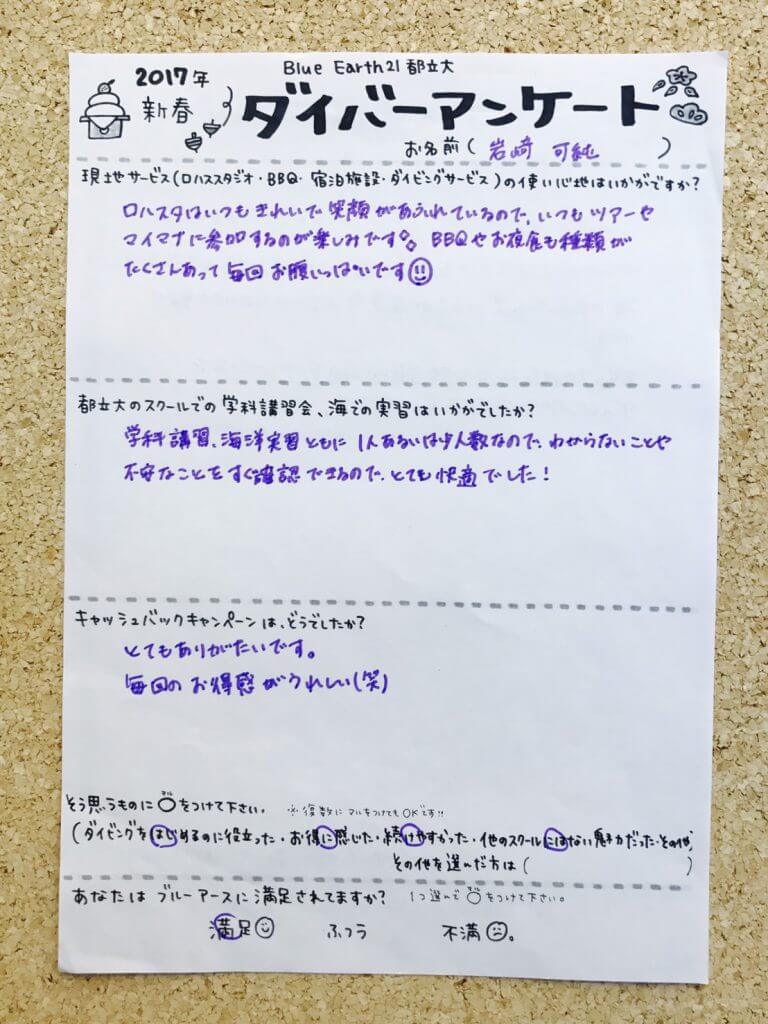 Blue Earth21 都立大
2017年
新春
ダイバーアンケート
お名前( 岩崎 可純 )
現地サービス(ロハススタジオ・BBQ・宿泊施設・ダイビングサービス)の使い心地はいかがですか?
ロハスタはいつもきれいで笑顔があふれているので、いつもツアーや
マイマナに参加するのが楽しみです。BBQやお夜食も種類が
たくさんあって毎回お腹いっぱいです
都立大のスクールでの学科講習会、海での実習はいかがでしたか?
学科講習、海洋実習ともに1人あるいは少人数なので、わからないことや
不安なことをすぐ確認できるので、とても快適でした!
キャッシュバックキャンペーンは、どうでしたか?
とてもありがたいです。
毎回のお得感がうれしい(笑)
そう思うものに○をつけて下さい。 ※復数にマルをつけてもOKです!!
(ダイビングをはじめるのに役立った・お得に感じた・続けやすかった・他のスクールにはない魅力だった・その他)
その他を選んだ方は( )
あなたはブルーアースに満足されてますか? 1つ選んで○をつけて下さい。
満足 ふつう 不満。